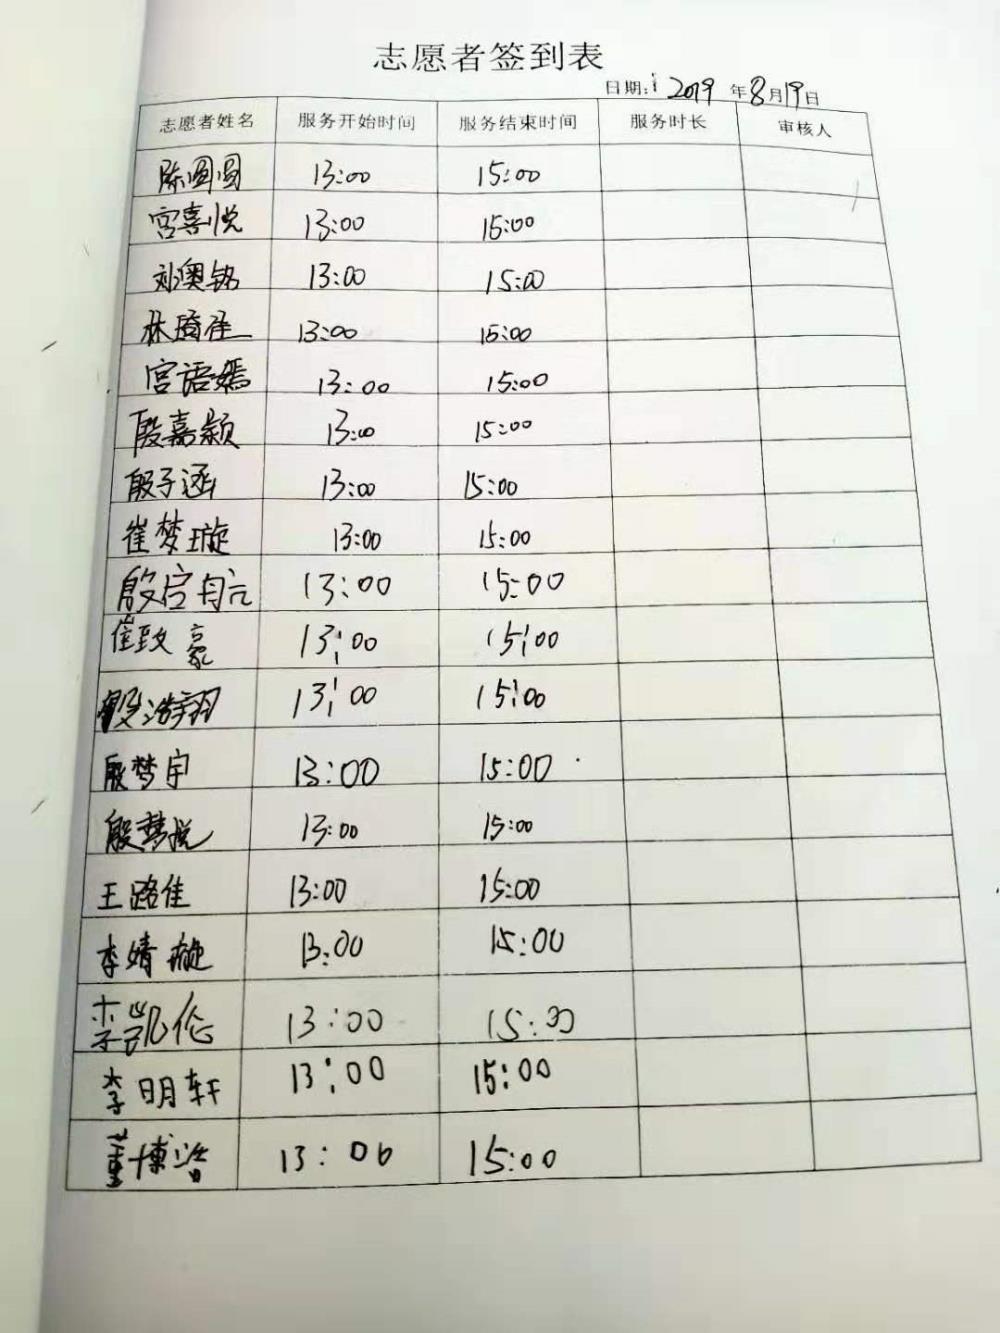 志愿者签到表
日期: 2019 年8月19日
志愿者姓名 服务开始时间 服务结束时间 服务时长 审核人
陈圆圆 13:00 15:00
宫喜悦 13:00 15:00
刘奥铭 13:00 15:00
林琦佳 13:00 15:00
宫语嫣 13:00 15:00
殷嘉颖 13:00 15:00
殷子涵 13:00 15:00
崔梦璇 13:00 15:00
殷启航 13:00 15:00
崔致豪 13:00 15:00
殷浩翔 13:00 15:00
殷梦宇 13:00 15:00
殷梦悦 13:00 15:00
王路佳 13:00 15:00
李婧璇 13:00 15:00
李凯伦 13:00 15:00
李明轩 13:00 15:00
董博浩 13:00 15:00